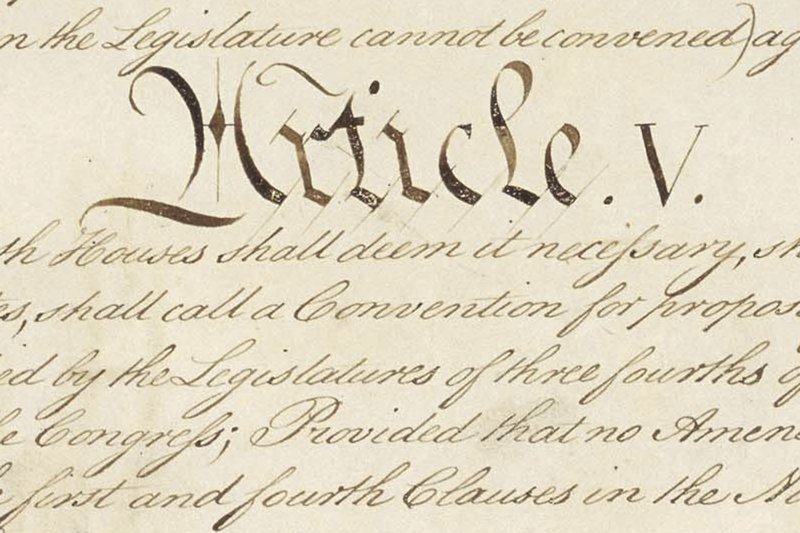 n the Legislature cannot be convened) ag
Article. V.
th Houses shall deem it neceſsary, sh
es, shall call a Convention for propos
ied by the Legislatures of three fourths of
he Congreſs; Provided that no Amen
e first and fourth Clauses in the N